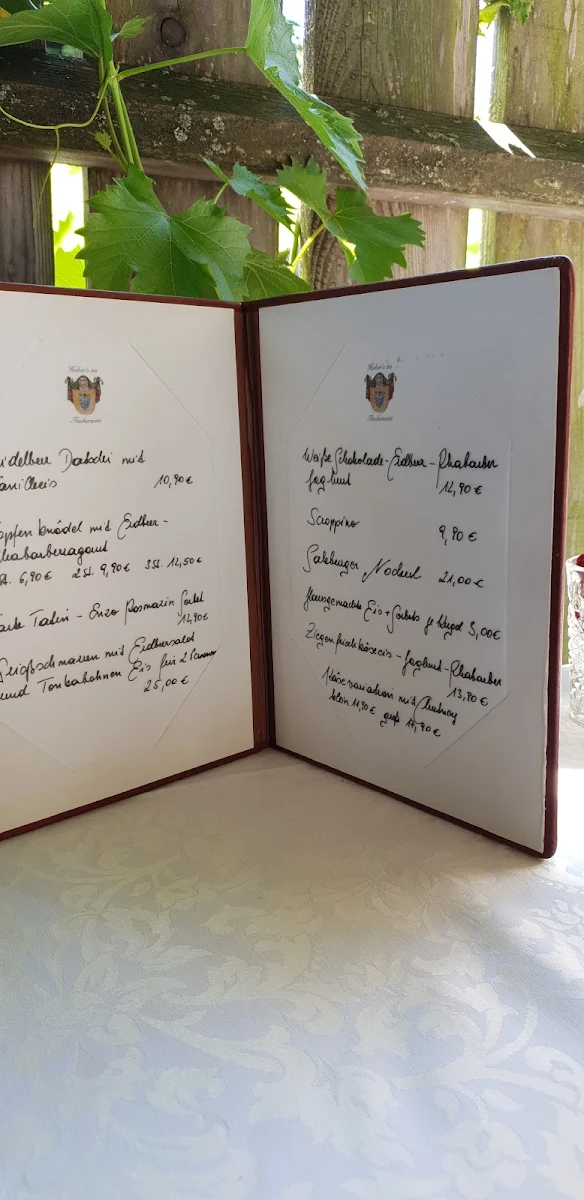 Huber's im
Fischerwirt
idelbeer Datschi mit
anilleeis 10,90 €
opfenknödel mit Erdbeer-
habarberragout
St. 6,90 € 2 St. 9,90 € 3 St. 12,50 €
Tatin - Rosmarin Sorbet
12,90 €
Grießschmarren mit Erdbeersalat
und Tonkabohnen Eis für 2 Personen
25,00 €
Huber's im
Fischerwirt
Weiße Schokolade - Erdbeer - Rhabarber
Joghurt 12,90 €
Scroppino 9,90 €
Salzburger Nockerl 21,00 €
Hausgemachte Eis + Sorbets je Kugel 3,00 €
Ziegenfrischkäseeis - Joghurt - Rhabarber
13,80 €
Käsevariation mit Chutney
klein 11,90 € groß 17,90 €